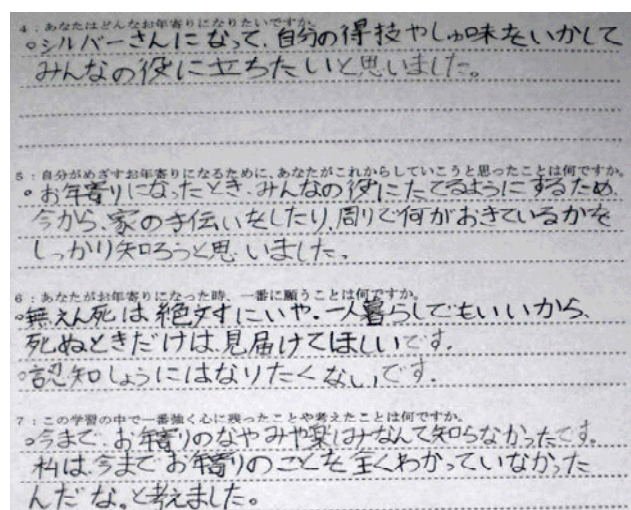 4：あなたはどんなお年寄りになりたいですか。
。シルバーさんになって、自分の得技やしゅ味をいかして
みんなの役に立ちたいと思いました。
5：自分がめざすお年寄りになるために、あなたがこれからしていこうと思ったことは何ですか。
。お年寄りになったとき、みんなの役にたてるようにするため、
今から、家の手伝いをしたり、周りで何がおきているかを
しっかり知ろうと思いました。
6：あなたがお年寄りになった時、一番に願うことは何ですか。
。無えん死は絶対にいや。一人暮らしでもいいから、
死ぬときだけは見届けてほしいです。
。認知しょうにはなりたくないです。
7：この学習の中で一番強く心に残ったことや考えたことは何ですか。
。今まで、お年寄りのなやみや楽しみなんて知らなかったです。
私は、今までお年寄りのことを全くわかっていなかった
んだな。と考えました。